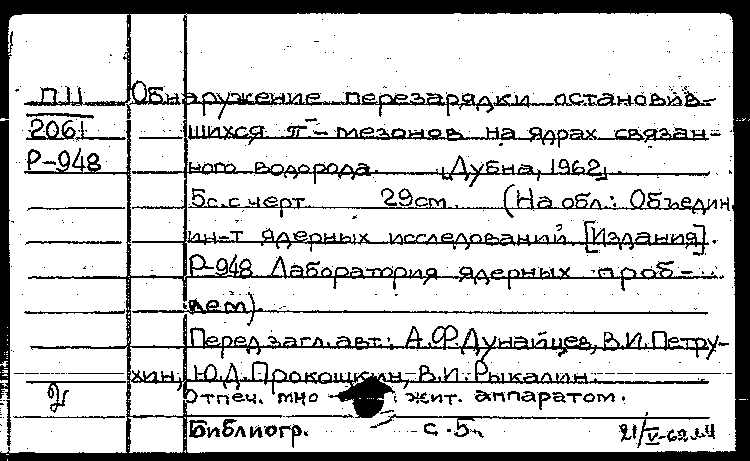 П11 Обнаружение перезарядки остановив-
2061 шихся π⁻-мезонов на ядрах связан-
Р-948 ного водорода. [Дубна, 1962].
5с. с черт. 29см. (На обл.: Объедин.
ин-т ядерных исследований [Издания].
Р-948 Лаборатория ядерных проб-
лем).
Перед загл. авт.: А.Ф.Дунайцев, В.И.Петру-
хин, Ю.Д.Прокошкин, В.И.Рыкалин.
Отпеч. мно жит. аппаратом.
Библиогр. с.5.